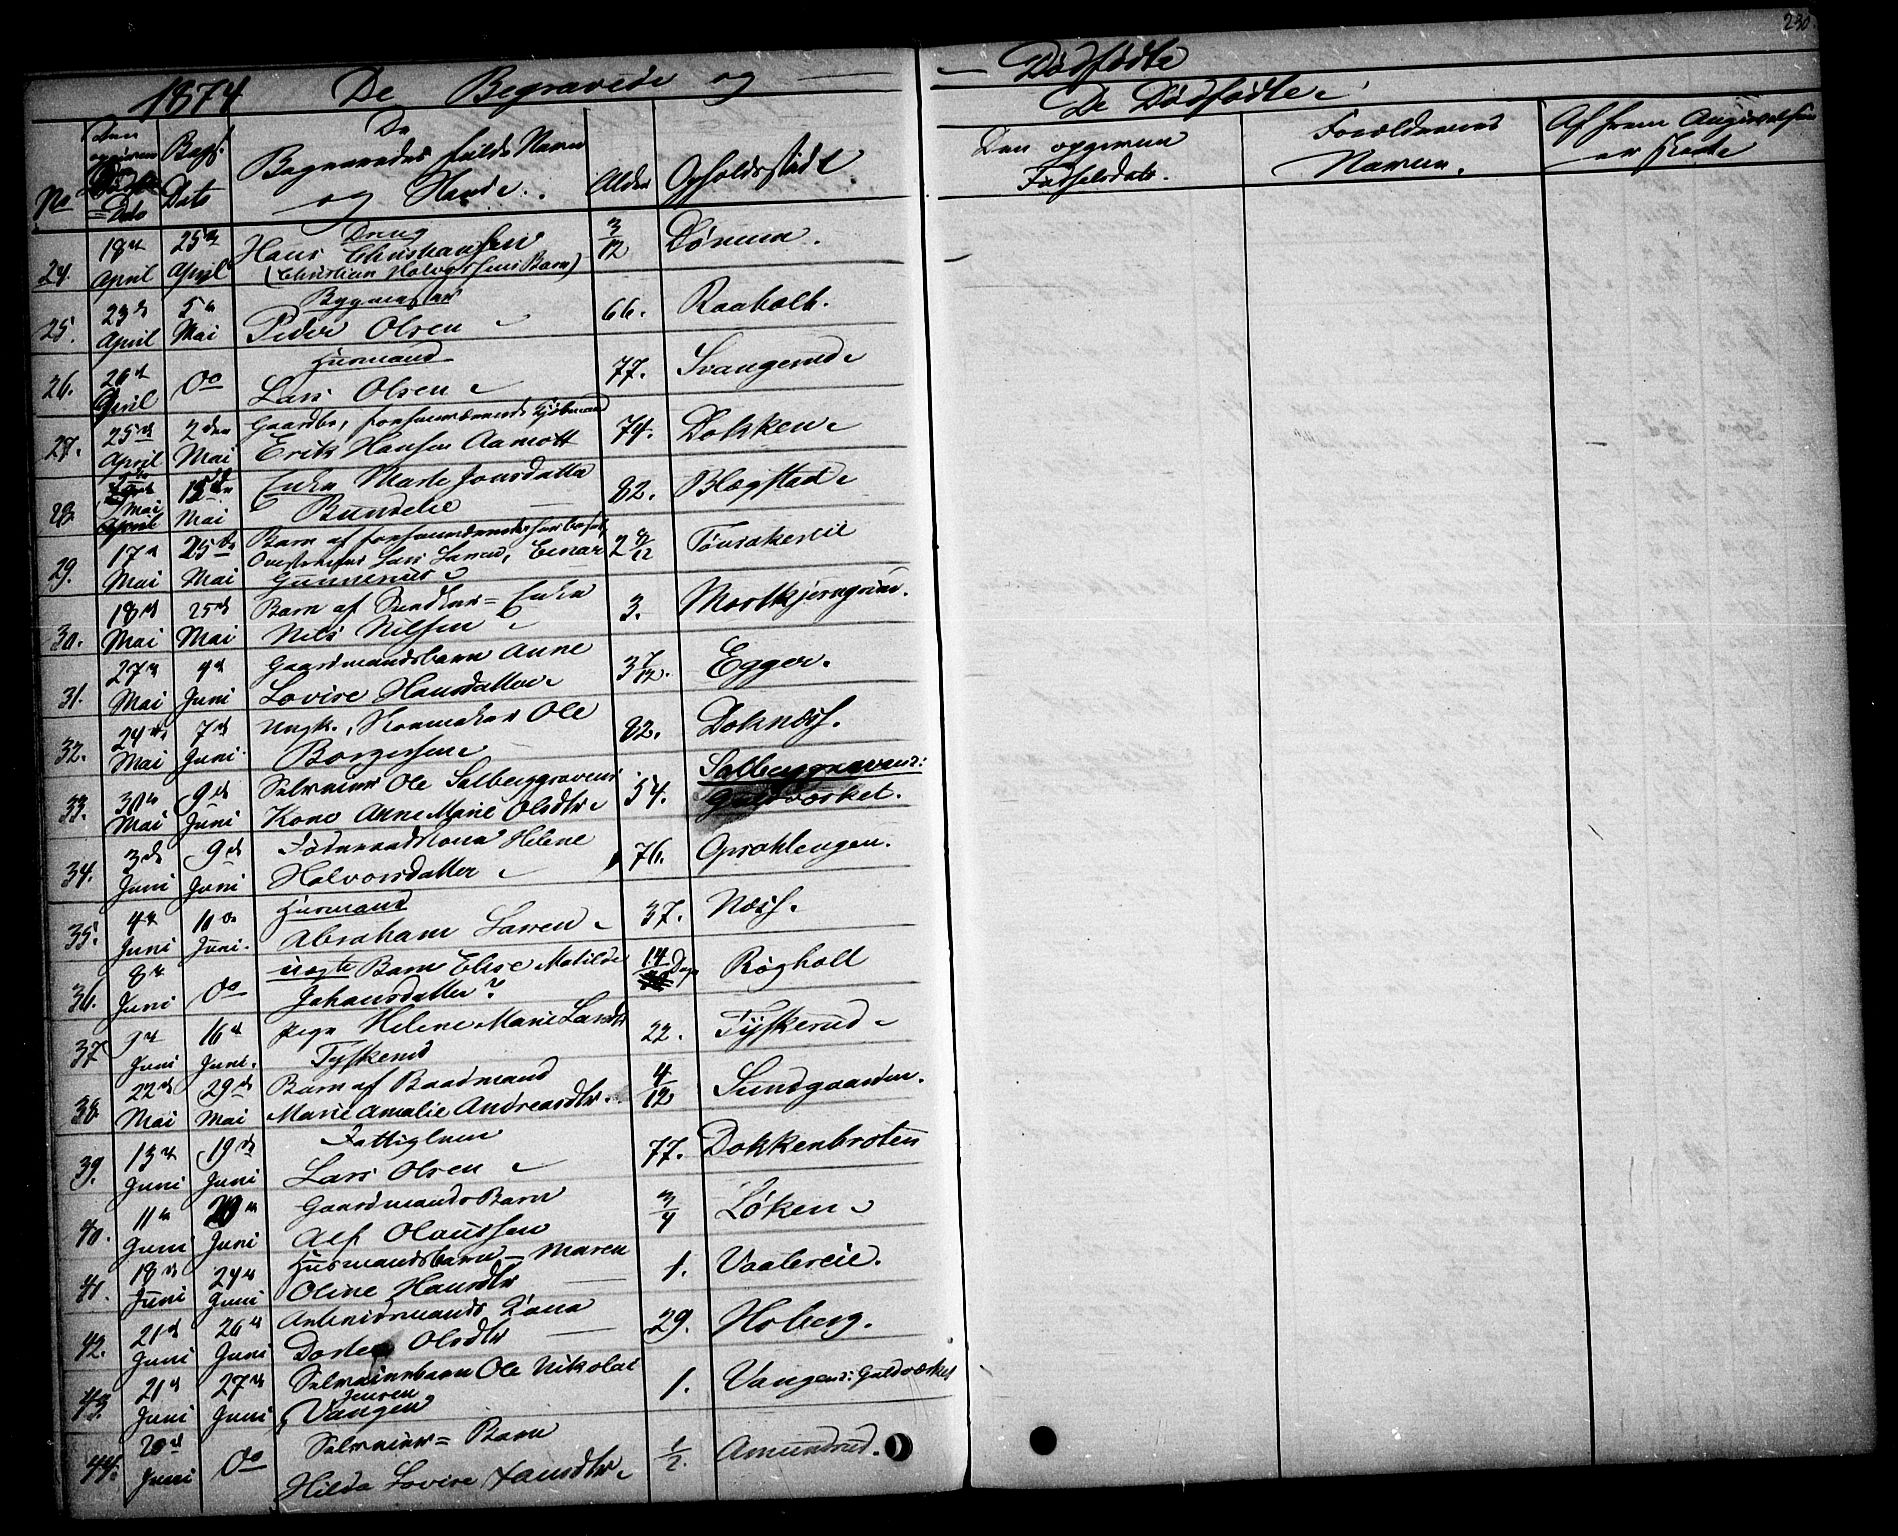 230
1874 De Begravede og — — Dødfødte
De Dødfødte
No
Den opgivne Døds Dato
Begr. Dato
De Begravedes fulde Navn og Stand.
Alder
Opholdssted
Den opgivne Fødselsdato.
Forældrenes Navne.
Af hvem Angivelsen er skede
24. 18de April 25de April Dreng Hans Christiansen (Christian Halvorsens Barn) 3/12 Dønnum.
25. 23de April 5te Mai Bygmester Peder Olsen 66. Raaholt.
26. 26de April Do Husmand Lars Olsen 77. Svangerud
27. 25de April 2den Mai Gaardbr, forhenværende Erik Hansen Aamott 74. Dokken
28. Mai Mai Enke Marte Jonsdatter Bundelie 82. Blegstad
29. 17de Mai 25de Mai Barn af Lars Einar Gunnenius 2 8/12
30. 18de Mai 25de Mai Barn af Enke Nils Nilsen 3.
31. 27de Mai 4de Juni Gaardmandsbarn Anne Lovise Hansdatter 3 7/12. Egger.
32. 24de Mai 7de Juni Ungk., Skomaker Ole Borgersen 82. Doknæss.
33. 30te Mai 9de Juni Selveier Ole Salberggravens Kone Anne Marie Olsdtr 54. Salberggravens: Guldværket.
34. 3de Juni 9de Juni Føderaadskona Helene Halvorsdatter 76. Opsahlengen.
35. 4de Juni 11te Juni. Husmand Abraham Larsen 37. Næss.
36. 8de Juni Do uægte Barn Elise Matilde Johansdatter? 14 Dage Røgholt
37 9de Juni 16de Juni. Pige Helene Marie Larsdtr Tyskerud 22. Tyskerud
38. 22de Mai 29de Mai Barn af Baadmand Marie Amalie Andreasdtr. 4/12 Sundgaarden.
39. 13de Juni 19de Juni Fattiglem Lars Olsen 77. Dokkenbroten
40. 11te Juni 20de Juni Gaardmands Barn Alf Olaussen 3/4 Løken
41. 18de Juni 24de Juni Husmandsbarn — Maren Oline Hansdtr — 1. Vaalereie.
42. 21de Juni 26de Juni Arbeidsmands Kona Dortea Olsdtr — 29. Hoberg.
43. 21de Juni 27de Juni Selveierbarn Ole Nikolai Jensen Vangen 1. Vangens: Guldværket
44. 20de Juni Do Selveier= Barn Hilda Lovise Hansdtr 1/2. Amundrud.